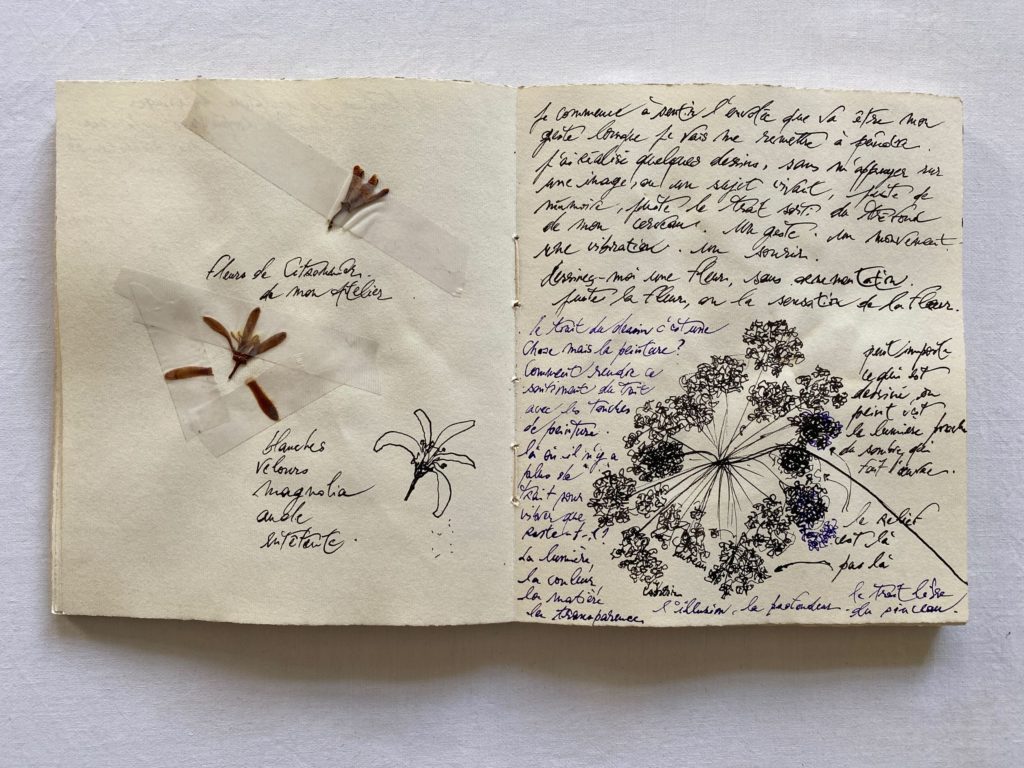 Fleurs de Citronnier.
de mon Atelier
blanches
velours
magnolia
ambre
entêtante.
je commence à sentir l'envolée que va être mon
geste lorsque je vais me remettre à peindre.
j'ai réalisé quelques dessins, sans m'appuyer sur
une image, ou un sujet vivant, juste de
mémoire, juste le trait sorti du tréfond
de mon cerveau. Un geste. un mouvement.
une vibration. un sourir.
dessinez-moi une fleur, sans
juste la fleur, ou la sensation de la fleur.
le trait du dessin c'est une
chose mais la peinture?
Comment rendre ce
sentiment du trait
avec les touches
de peinture.
là où il n'y a
plus de
trait pour
vibrer que
reste-t-il?
La lumière,
la couleur
la matière
la transparence
peut importe
ce qui est
dessiné, on
peint c'est
la lumière proche
du sombre qui
fait
le relief
est là
pas là
l'illusion, la profondeur.
le trait libre
du pinceau.